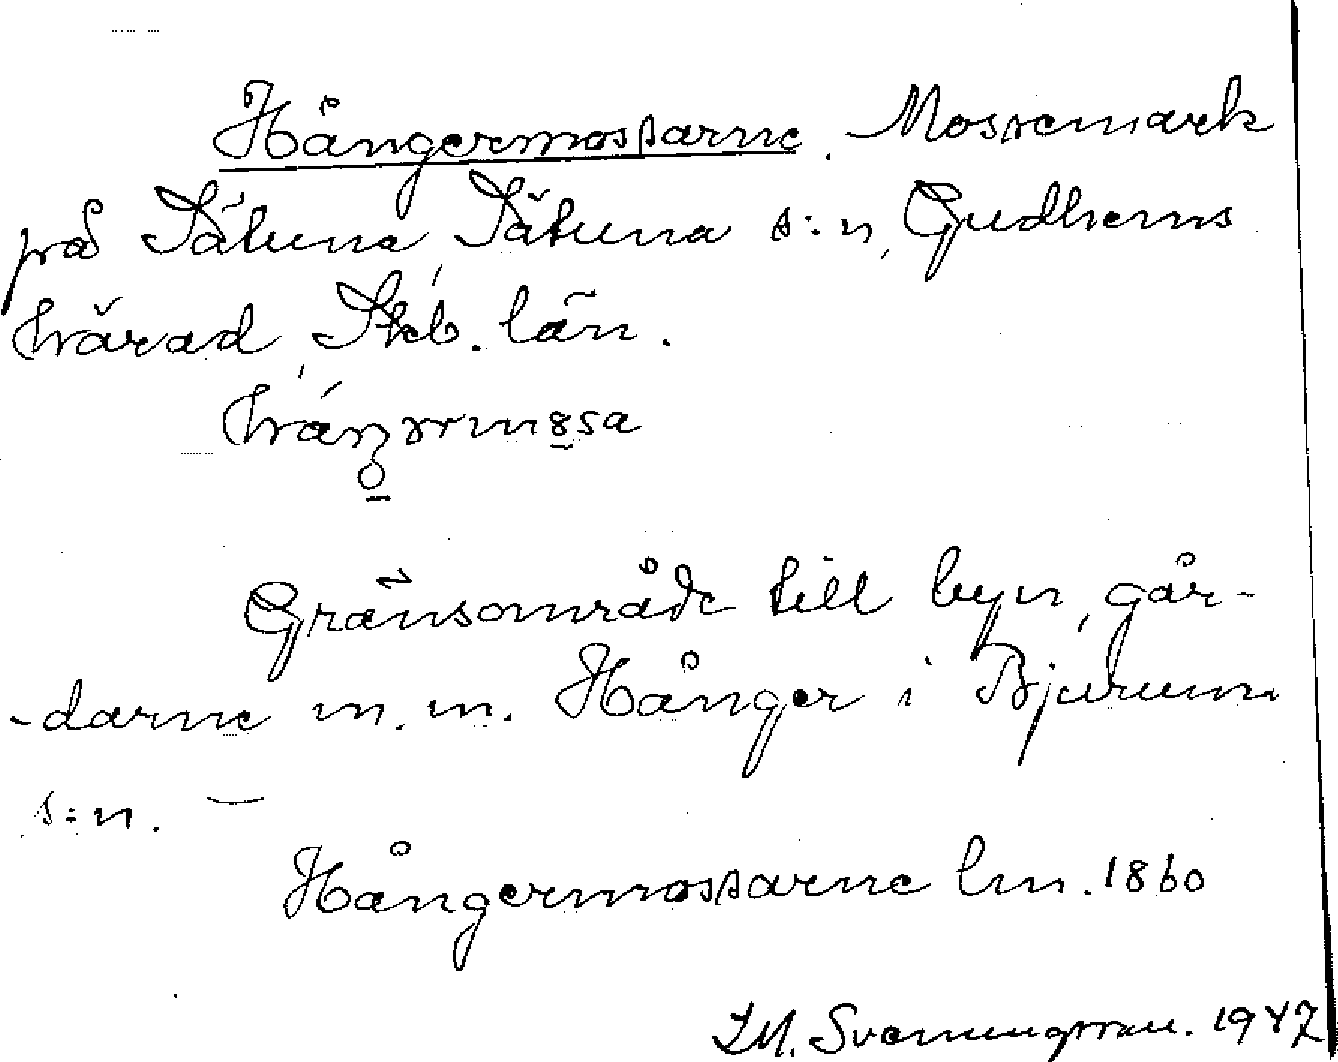 Hångermossarne. Mossemark
på Sätuna, Sätuna s:n, Gudhems
härad, Skb. län.
Gränsområde till byn, går-
-darne m.m. Hånger i Bjurum
s:n. —
Hångermossarne lm. 1860
Svenungsson. 1947